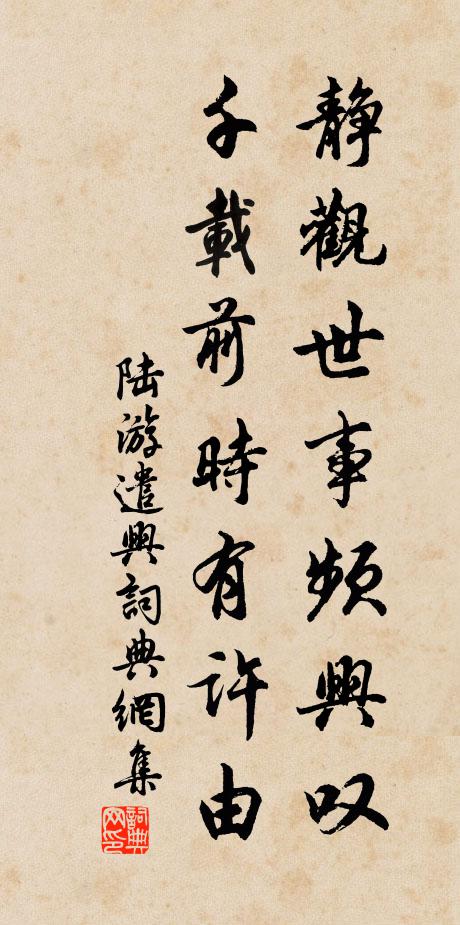 静觀世事頻興叹
千載前時有许由
陆游遣興詞典網集
詞典网印